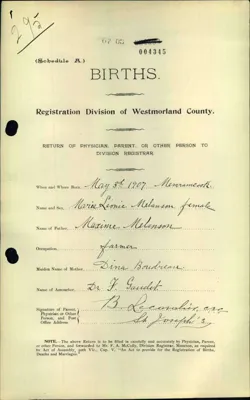 292
004345
(Schedule A.)
BIRTHS.
Registration Division of Westmorland County.
RETURN OF PHYSICIAN, PARENT, OR OTHER PERSON TO
DIVISION REGISTRAR.
When and Where Born, May 8th 1907 Memramcook
Name and Sex, Marie Leonie Melanson female
Name of Father, Maxime Melanson
Occupation, farmer
Maiden Name of Mother, Dina Boudreau
Name of Accoucher, Dr F. Gaudet
Signature of Parent,
Physician or Other
Person, and Post
Office Address
B.
St Joseph's
NOTE.—The above Return is to be filled in carefully and accurately by Physician, Parent,
or other Person, and forwarded to Mr. F. A. McCully, Division Registrar, Moncton, as required
by Act of Assembly, 50th Vic., Cap. V, "An Act to provide for the Registration of Births,
Deaths and Marriages."